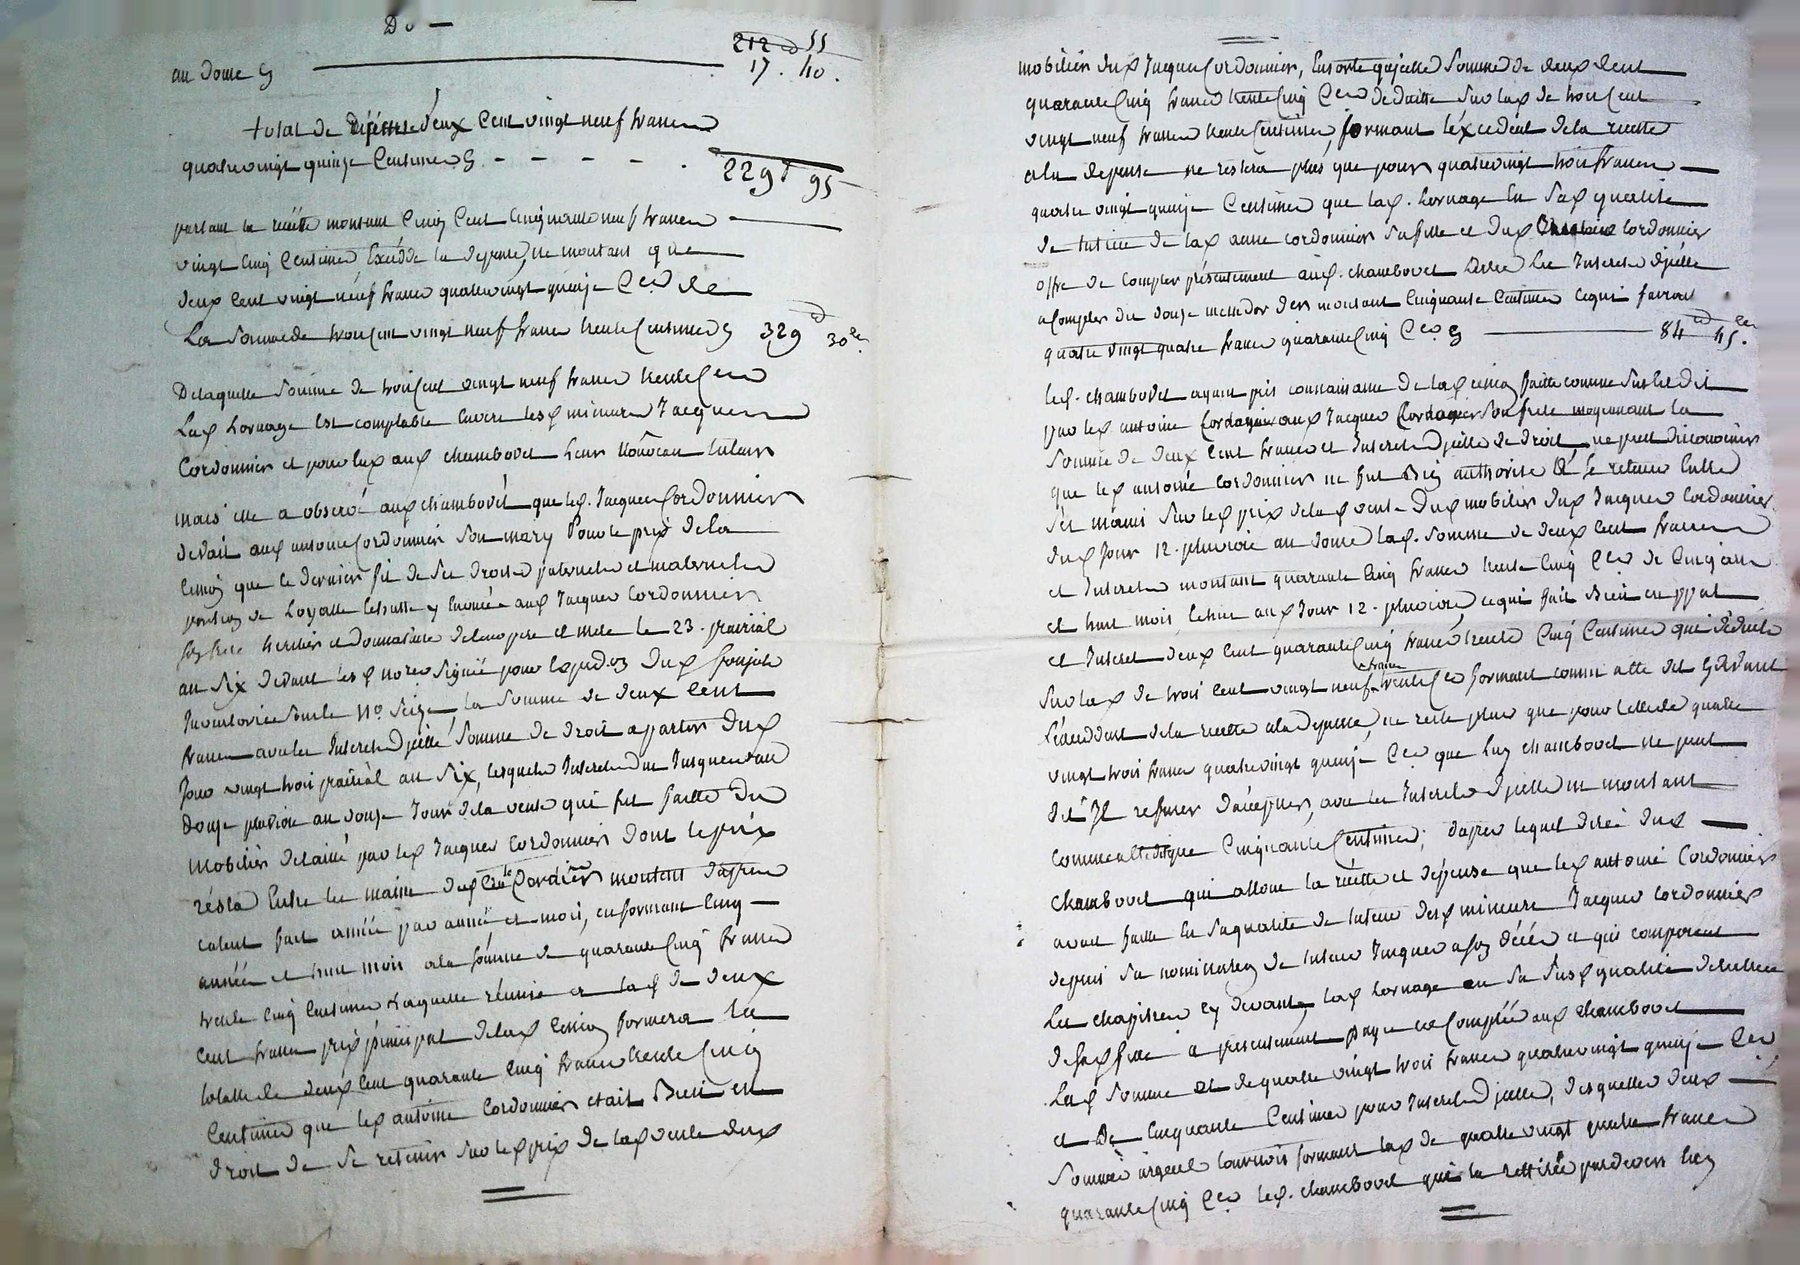 De —
212 d 55
an douze 17 . 40 .
total de dépense deux cent vingt neuf francs
quatrevingt quinze centimes - - - - . 229 d 95
partant la recette montant cinq cent cinquante neuf francs
vingt cinq centimes Excédde la depense, ne montant que
deux cent vingt neuf francs quatrevingt quinze c.es de
La somme de trois cent vingt neuf francs trente centimes 329 d 30 ce.
De laquelle somme de trois cent vingt neuf francs trente c.es
Lad. hornage Est comptable envers lesd. mineurs Jacques
Cordonnier et pour lux aud. chambovet leur nouveau tuteur
mais elle a observé aud. chambovet que led. Jacques Cordonnier
devait aud. antoine Cordonnier son mary Pour le prix de la
cession que ce dernier fit de ses droits paternels et maternels
portion de Loyalle echutte y Enoncée aud. Jacques Cordonnier
son frere heritier et Donnataire de leurs pere et mere le 23. prairial
an six devant les no.res signée pour Expéd.on dud.
Inventoriée sous le N.o seize la somme de deux cent
francs avec les Interets d'jcelle somme de droit a partir dud.
jour vingt trois prairial an six, lesquels Interets Jusques au
douze pluviose an douze Jour de la vente qui fut faitte du
mobilier delaissé par led. Jacques Cordonnier dont le prix
résta Entre les mains dud. Cordonnier montent d'apres
calcul fait année par année, et mois, en formant cinq —
année et huit mois a la somme de quarante cinq francs
trente cinq centimes Laquelle réunie a lad. de deux
cent francs prix principal de lad. cession formera la
totalle de deux cent quarante cinq francs trente cinq
centimes que led. antoine Cordonnier était Bien en
droit de se retenir sur led. prix de lad. vente dud.
mobilier dud. Jacques Cordonnier, Ensorte qu'jcelle somme de deux cent
quarante cinq francs trente cinq c.es deduitte sur lad. de trois cent
vingt neuf francs trente centimes, formant l'éxcedent de la recette
a la depense ne restera plus que pour quatrevingt trois francs —
quatre vingt quinze centimes que lad. hornage En sad. qualité
de tutrice de lad. anne cordonnier sa fille et dud. cordonnier
offre de compter présentement aud. chambovet avec les Interets d'jcelle
a compter du douze messidor der. montant cinquante centimes ce qui faisait
quatre vingt quatre francs quarante cinq c.es 84 d 45 ce.
led. chambovet ayant pris connaissance de lad. cession faitte comme sus est dit
par led. antoine Cordonnier aud. Jacques Cordonnier son frere moyennant la
somme de deux cent francs et Interets d'jcelle de droit ne peut disconvenir
que led. antoine cordonnier ne fut Bien authorisé a se retenir Entre
ses mains sur led. prix de lad. vente Dud. mobilier dud. Jacques Cordonnier
dud. jour 12. pluviose an douze lad. somme de deux cent francs
et Interets montant quarante cinq francs trente cinq c.es de cinq ans
et huit mois, Echus aud. Jour 12. pluviose, ce qui fait Bien en ppal
et Interet deux cent quarante cinq francs trente cinq centimes qui déduits
sur lad. de trois cent vingt neuf francs trente c.es formant comme a été dit cy devant
L'éxcedent de la recette a la depense, ne reste plus que pour celle de quatre
vingt trois francs quatrevingt quinze c.es que luy chambovet ne peut
dit Jl refuser d'accepter, avec les Interets d'jcelle ne montant
comme a été dit que cinquante centimes; d'apres lequel dire dud. —
chambovet qui alloue la recette et dépense que led. antoine Cordonnier
avait faitte En sa qualité de tuteur desd. mineurs Jacques cordonnier
depuis sa nomination de tuteur Jusques a son décés et qui composent
Les chapitres cy devant, lad. hornage en sa susd. qualité de tutrice
de sad. fille a presentement payé et compté aud. chambovet
Lad. somme de quatre vingt trois francs quatrevingt quinze c.es
et De cinquante centimes pour Interets d'jcelle, desquelles deux —
sommes argent tournois formant lad. de quatre vingt quatre francs
quarante cinq c.es led. chambovet qui la rettirée pardevers luy